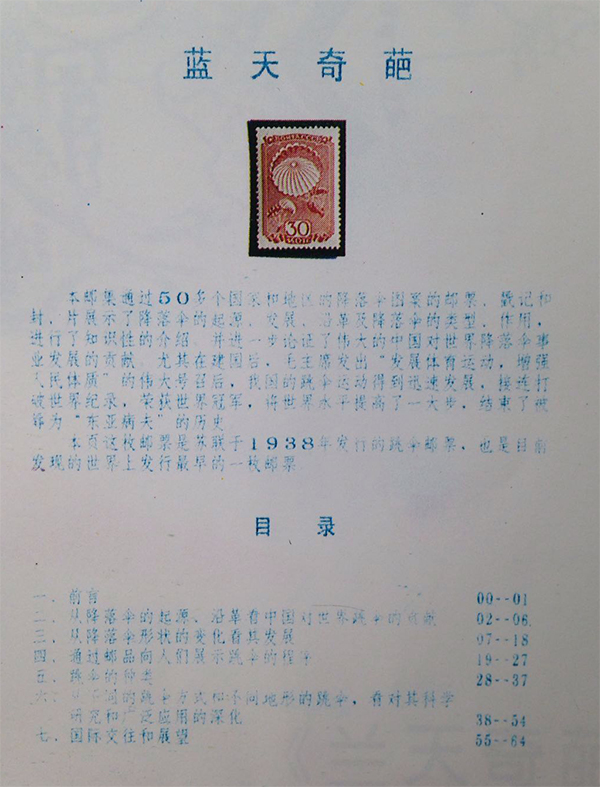 蓝天奇葩
ПОЧТА СССР
30
КОП
本邮集通过50多个国家和地区的降落伞图案的邮票、戳记和
封、片展示了降落伞的起源、发展、沿革及降落伞的类型、作用，
进行了知识性的介绍。并进一步论证了伟大的中国对世界降落伞事
业发展的贡献。尤其在建国后，毛主席发出“发展体育运动，增强
人民体质”的伟大号召后，我国的跳伞运动得到迅速发展，接连打
破世界纪录，荣获世界冠军，将世界水平提高了一大步，结束了被
称为“东亚病夫”的历史。
本页这枚邮票是苏联于1938年发行的跳伞邮票，也是目前
发现的世界上发行最早的一枚邮票
目录
一、前言 00--01
二、从降落伞的起源、沿革看中国对世界跳伞的贡献 02--06
三、从降落伞形状的变化看其发展 07--18
四、通过邮品向人们展示跳伞的程序 19--27
五、跳伞的种类 28--37
六、从不同的跳伞方式和不同地形的跳伞，看对其科学
研究和广泛应用的深化 38--54
七、国际交往和展望 55--64